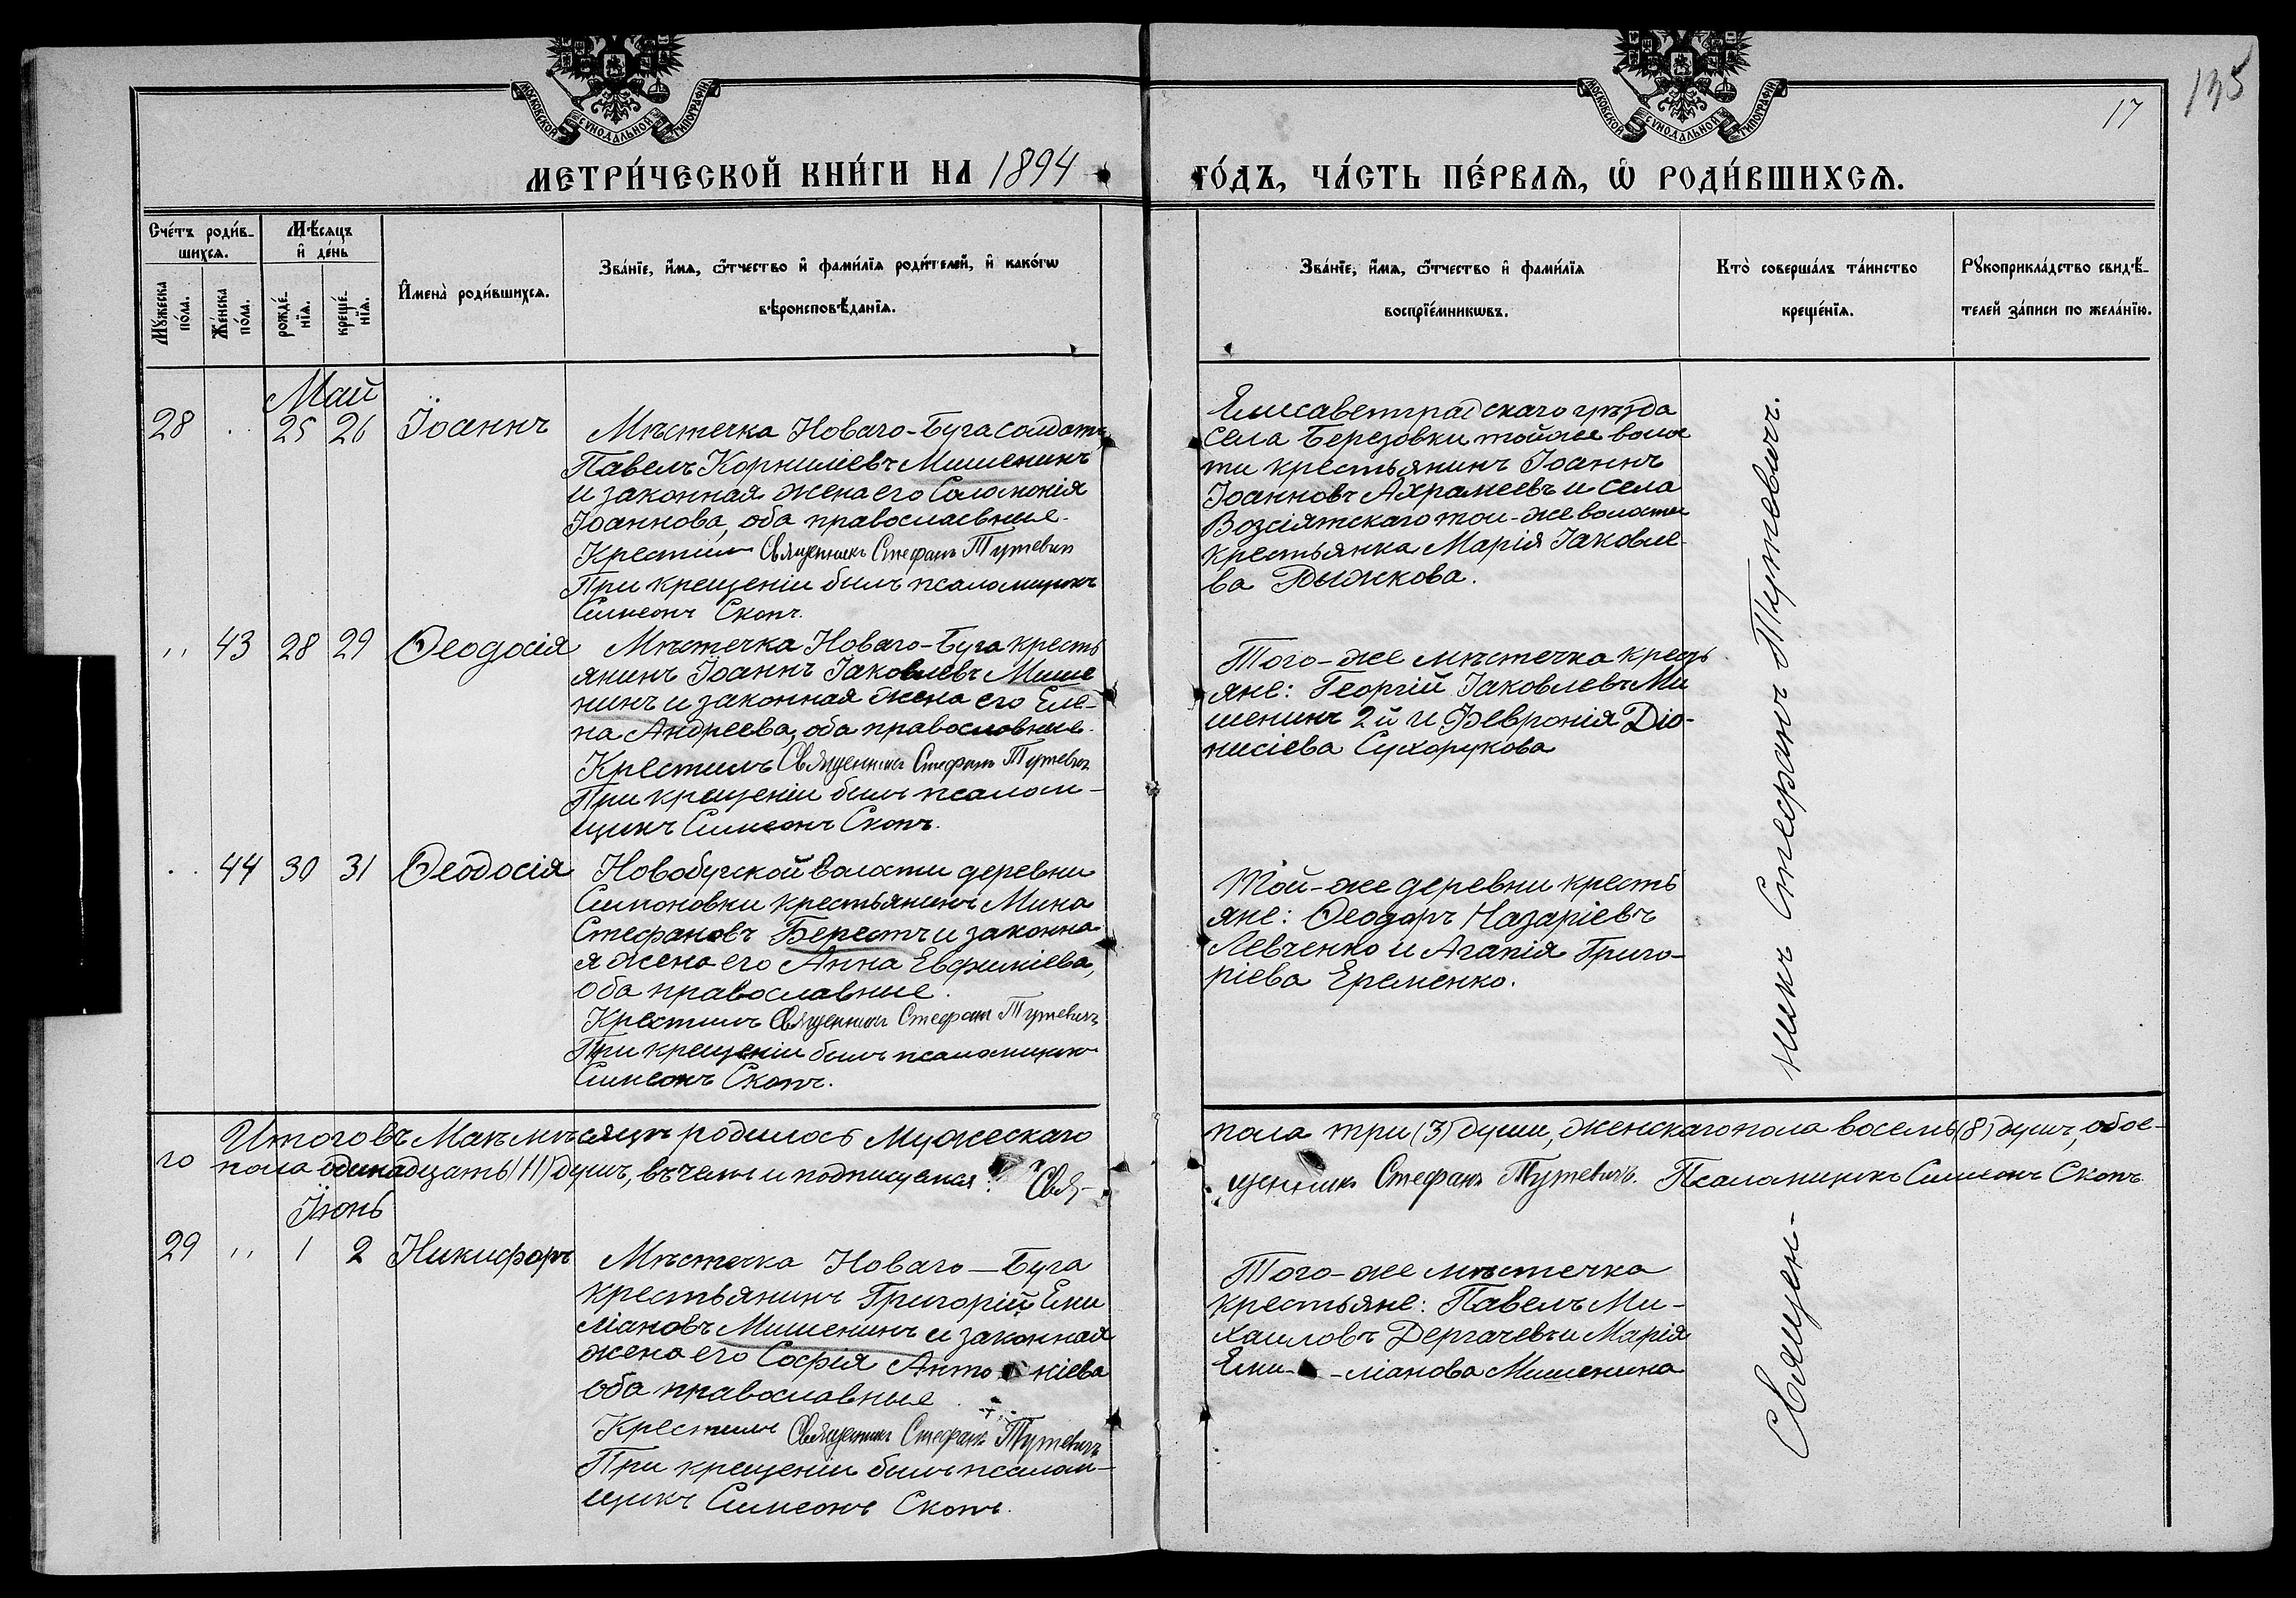 МОСКОВСКОЙ СУНОДАЛЬНОЙ ТИПОГРАФІИ
МОСКОВСКОЙ СУНОДАЛЬНОЙ ТИПОГРАФІИ
135
17
МЕТРИ́ЧЕСКОЙ КНИ́ГИ НА 1894
ГО́ДЪ, ЧА́СТЬ ПЕ́РВАѦ, Ѡ҆ РОДИ́ВШИХСѦ.
Сче́тъ роди́в-
шихсѧ.
Мѣ́сяцъ
и҆ де́нь
Мꙋ́жеска
по́ла.
Же́нска
по́ла.
рожде́-
нїѧ.
креще́-
нїѧ.
И҆мена̀ роди́вшихсѧ.
Зва́нїе, и҆́мѧ, ѻ҆́тчество и҆ фами́лїѧ роди́телей, и҆ како́гѡ
вѣроисповѣ́данїѧ.
Зва́нїе, и҆́мѧ, ѻ҆́тчество и҆ фами́лїѧ
воспрїе́мникѡвъ.
Кто̀ соверша́лъ та́инство
креще́нїѧ.
Рꙋкоприкла́дство свидѣ́-
телей за́писи по жела́нїю.
Май
28 .. 25 26 Іоаннъ
Мѣстечка Новаго-Буга солдатъ
Павелъ Корниліевъ Мишенинъ
и законная жена его Соломонія
Іоаннова, оба православные.
Крестилъ Священникъ Стефанъ Тутевич
При крещеніи былъ псаломщикъ
Симеонъ Скопъ.
Елисаветградскаго уѣзда
села Березовки тойже волос
ти крестьянинъ Іоаннъ
Іоанновъ Ахрамеевъ и села
Возсіятскаго той-же волости
крестьянка Марія Іаковле-
ва Рыжкова.
,, 43 28 29 Ѳеодосія
Мѣстечка Новаго-Буга кресть
янинъ Іоаннъ Іаковлевъ Мише
нинъ и законная жена его Еле-
на Андреева, оба православные.
Крестилъ Священникъ Стефанъ Тутевичъ
При крещеніи былъ псалом-
щикъ Симеонъ Скопъ.
Того-же мѣстечка кресть
яне: Георгій Іаковлевъ Ми
шенинъ 2й и Февронія Діо-
нисіева Сухорукова
.. 44 30 31 Ѳеодосія
Новобугской волости деревни
Симоновки крестьянинъ Мина
Стефановъ Берестъ и законна
я жена его Анна Евфиміева,
оба православные.
Крестилъ Священникъ Стефанъ Тутевичъ
При крещеніи былъ псаломщикъ
Симеонъ Скопъ.
Той-же деревни кресть
яне: Ѳеодоръ Назаріевъ
Левченко и Агапія Григо-
ріева Еременко.
Итого въ Маѣ мѣсяцѣ родилось Мужескаго
пола три (3) души, женскаго пола восемь (8) душъ, обое-
го пола одинадцать (11) душъ, въ чемъ и подписуемся: Свя-
щенникъ Стефанъ Тутевичъ. Псаломщикъ Симеонъ Скопъ
Іюнь
29 ,, 1 2 Никифоръ
Мѣстечка Новаго-Буга
крестьянинъ Григорій Еми
ліановъ Мишенинъ и законная
жена его Софія Анто ніева
оба православные.
Крестилъ Священникъ Стефанъ Тутевичъ
При крещеніи былъ псалом-
щикъ Симеонъ Скопъ.
Того-же мѣстечка
крестьяне: Павелъ Ми-
хаиловъ Дергачевъ и Марія
Еми- -ліанова Мишенина
Священ-
никъ Стефанъ Тутевичъ.